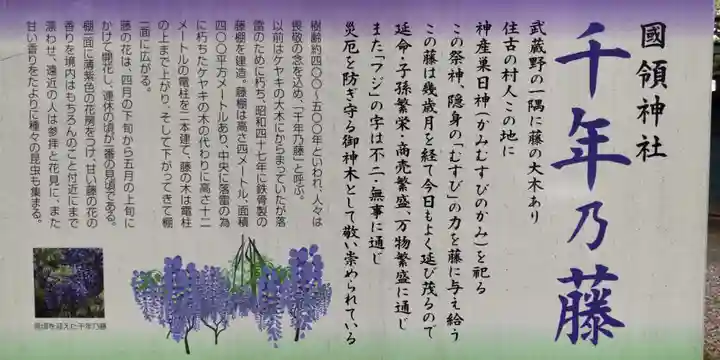 國領神社
千年乃藤
武蔵野の一隅に藤の大木あり
住古の村人この地に
神産巣日神(かみむすびのかみ)を祀る
この祭神、隠身の「むすび」の力を藤に与え給う
この藤は幾歳月を経て今日もよく延び茂るので
延命・子孫繁栄・商売繁盛、万物繁盛に通じ
また「フジ」の字は不二・無事に通じ
災厄を防ぎ守る御神木として敬い崇められている
樹齢約四〇〇~五〇〇年といわれ、人々は
畏敬の念を込め、「千年乃藤」と呼ぶ。
以前はケヤキの大木にからまっていたが落
雷のために朽ち、昭和四十七年に鉄骨製の
藤棚を建造。藤棚は高さ四メートル、面積
四〇〇平方メートルあり、中央に落雷の為
に朽ちたケヤキの木の代わりに高さ十二
メートルの電柱を二本建て、藤の木は電柱
の上まで上がり、そして下がってきて棚
一面に広がる。
藤の花は、四月の下旬から五月の上旬に
かけて開花し、連休の頃が一番の見頃である。
棚一面に薄紫色の花房をつけ、甘い藤の花の
香りを境内はもちろんのこと付近にまで
漂わせ、遠近の人は参拝と花見に、また
甘い香りをたよりに種々の昆虫も集まる。
見頃を迎えた千年乃藤